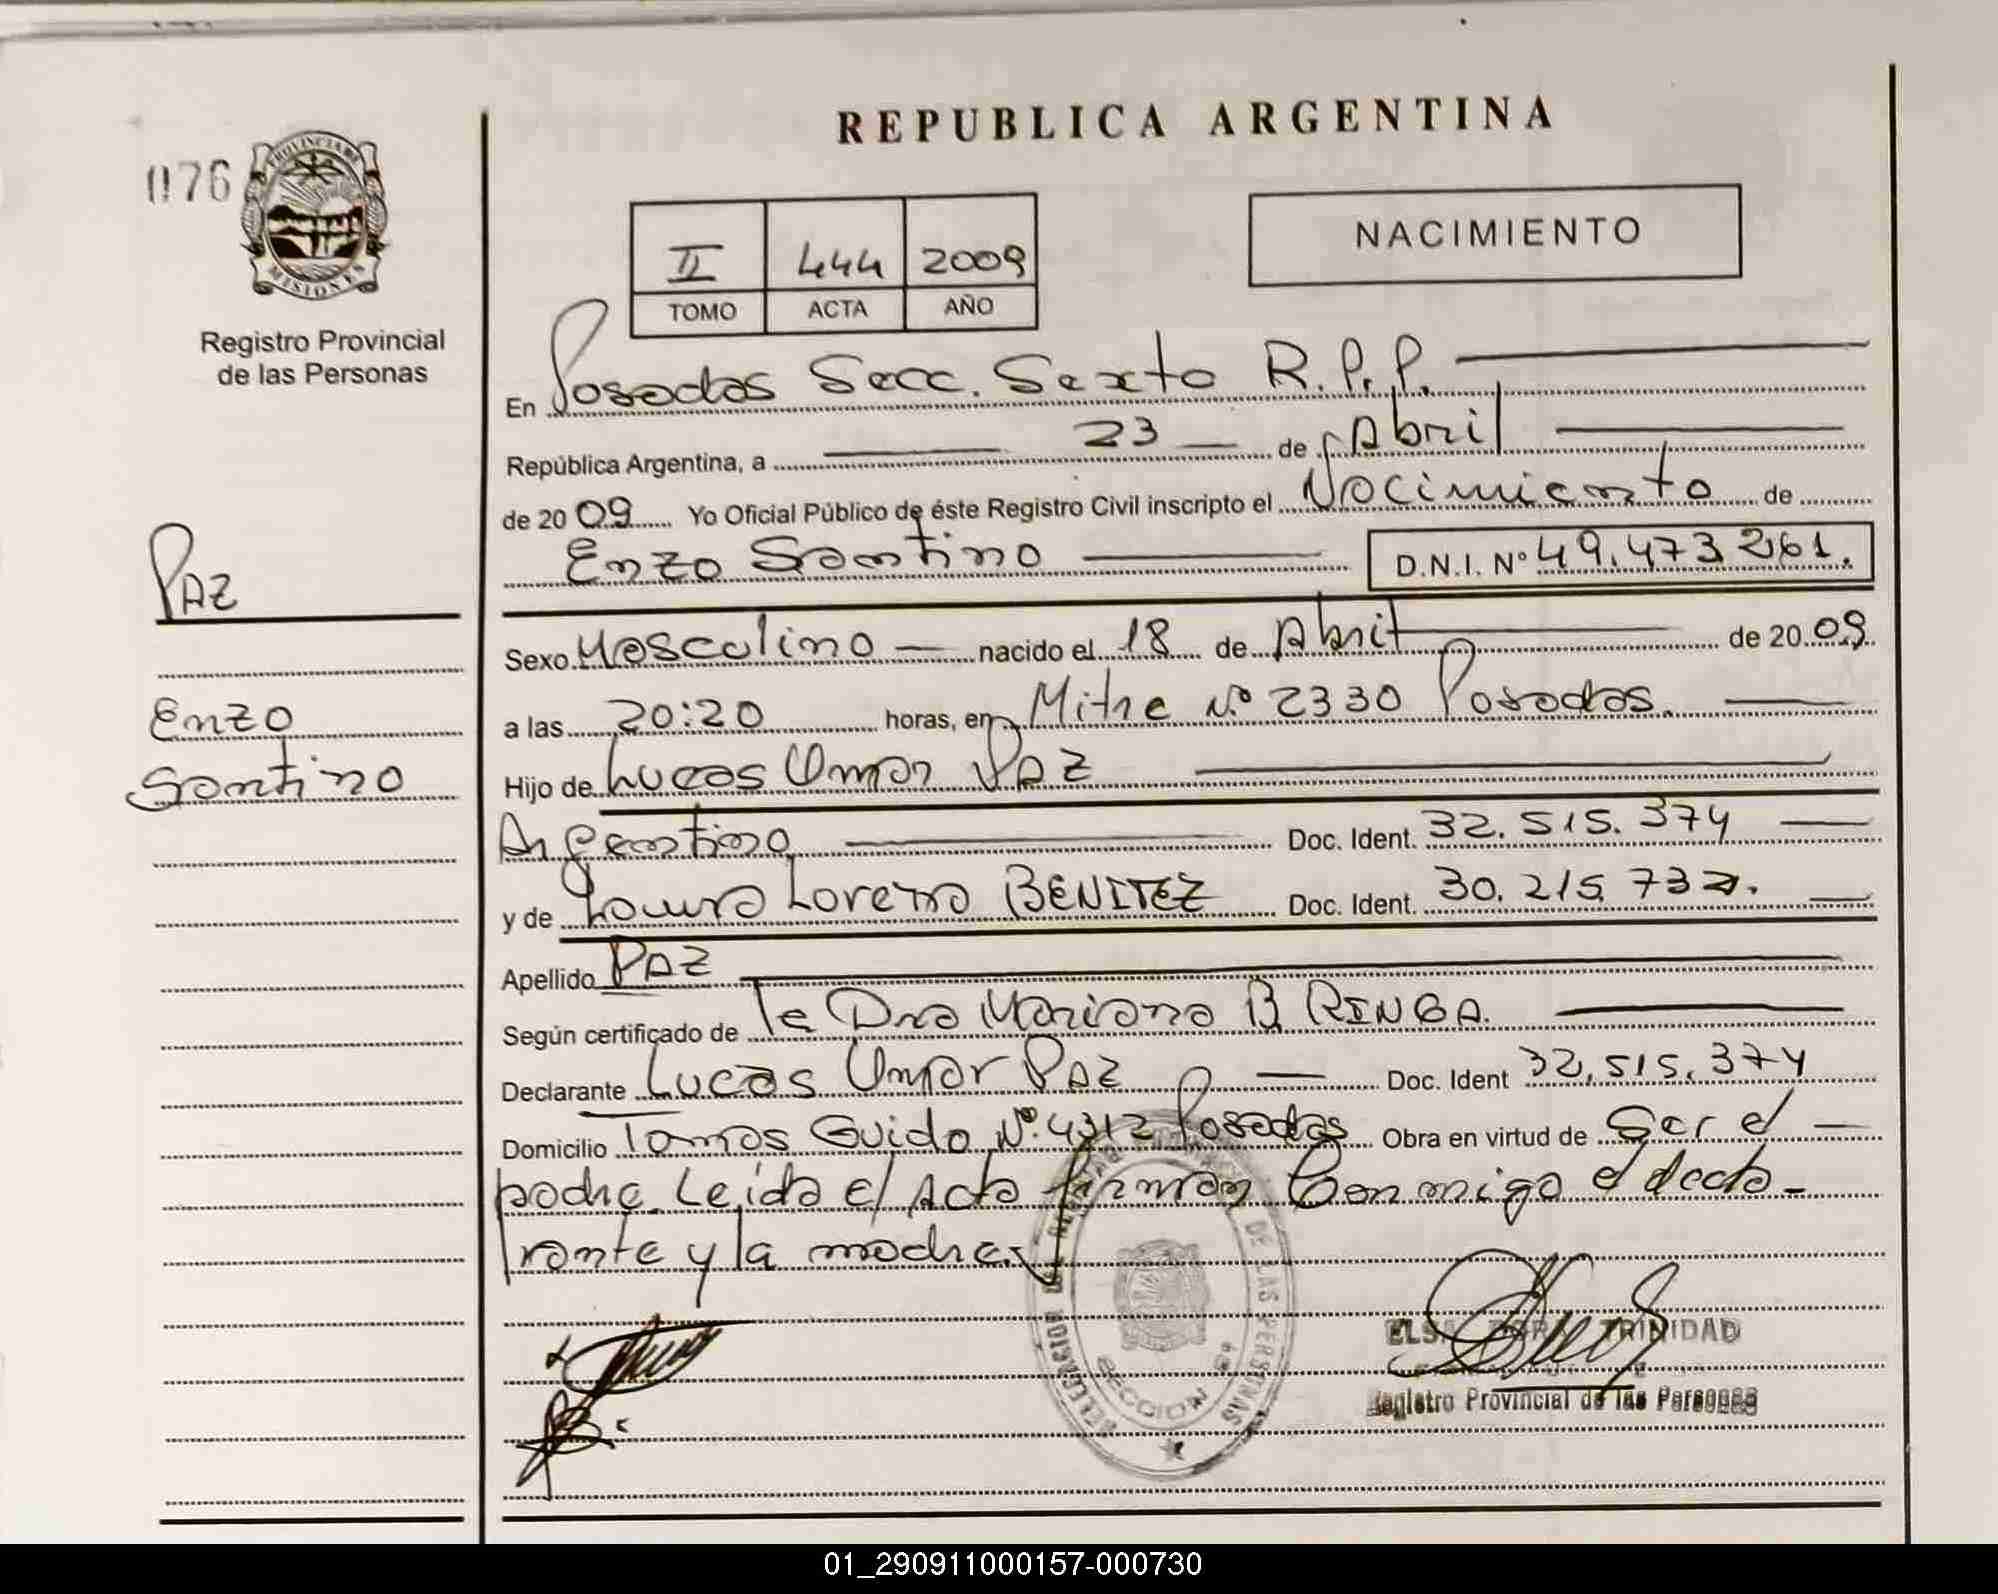 REPUBLICA ARGENTINA
076
PROVINCIA DE
MISIONES
Registro Provincial
de las Personas
NACIMIENTO
II 444 2009
TOMO ACTA AÑO
En Posadas Secc. Sexta R.P.P.
República Argentina, a 23 de Abril
de 2009 Yo Oficial Público de éste Registro Civil inscripto el Nacimiento de
Enzo Santino D.N.I. Nº 49.473.261.
PAZ
Enzo
Santino
Sexo Masculino nacido el 18 de Abril de 2009
a las 20:20 horas, en Mitre Nº 2330 Posadas.
Hijo de Lucas Omar PAZ
Argentino Doc. Ident. 32.515.374
y de Laura Lorena BENITEZ Doc. Ident. 30.215.737.
Apellido PAZ
Según certificado de la Dra Mariana B RINGA.
Declarante Lucas Omar PAZ Doc. Ident 32.515.374
Domicilio Tomas Guido Nº 4312 Posadas Obra en virtud de Ser el
padre. Leída el Acta firman conmigo el decla-
rante y la madre.
DE LAS PERSONAS
SECCION 6ª
ELSA TRINIDAD
Registro Provincial de las Personas
01_290911000157-000730